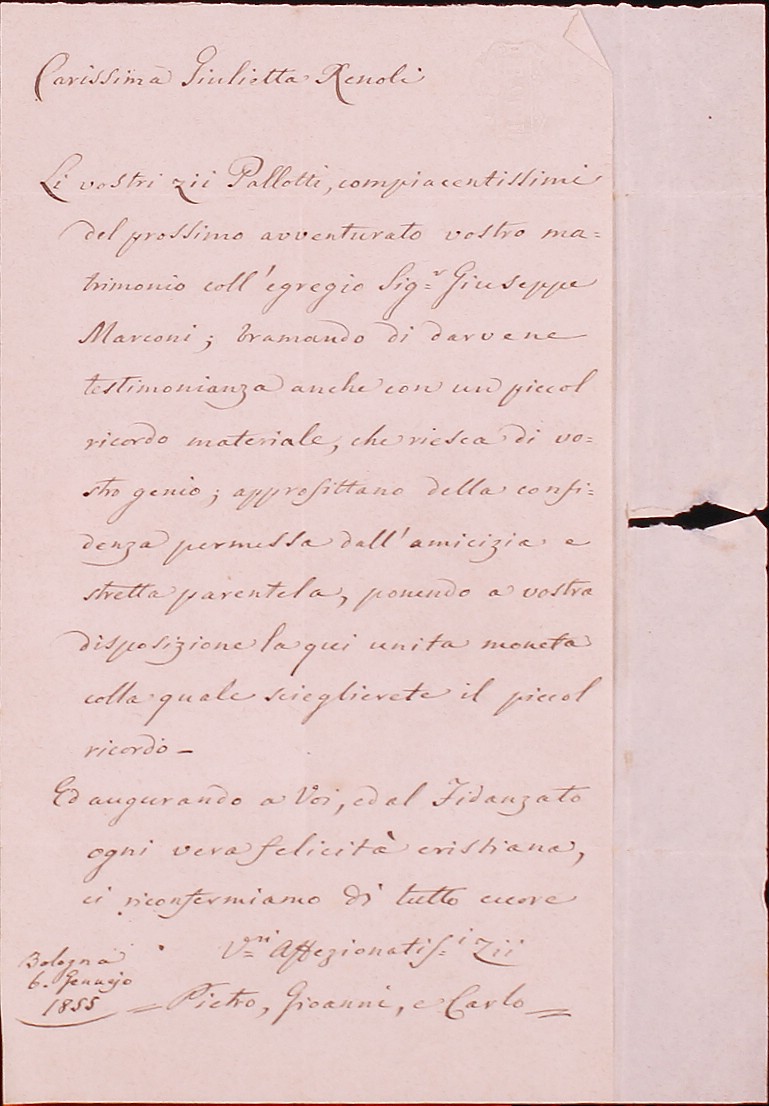 Carissima Giulietta Renoli
Li vostri zii Pallotti, compiacentissimi
del prossimo avventurato vostro ma=
trimonio coll'egregio Sig.r Giuseppe
Marconi; bramando di darvene
testimonianza anche con un piccol
ricordo materiale, che riesca di vo=
stro genio; approfittano della confi=
denza permessa dall'amicizia e
stretta parentela, ponendo a vostra
disposizione la qui unita moneta
colla quale sceglierete il piccol
ricordo –
Ed augurando a Voi, ed al Fidanzato
ogni vera felicità cristiana,
ci riconfermiamo di tutto cuore
V.ri Affezionatis.i Zii
Pietro, Gioanni, e Carlo
Bologna
6. Genajo
1855